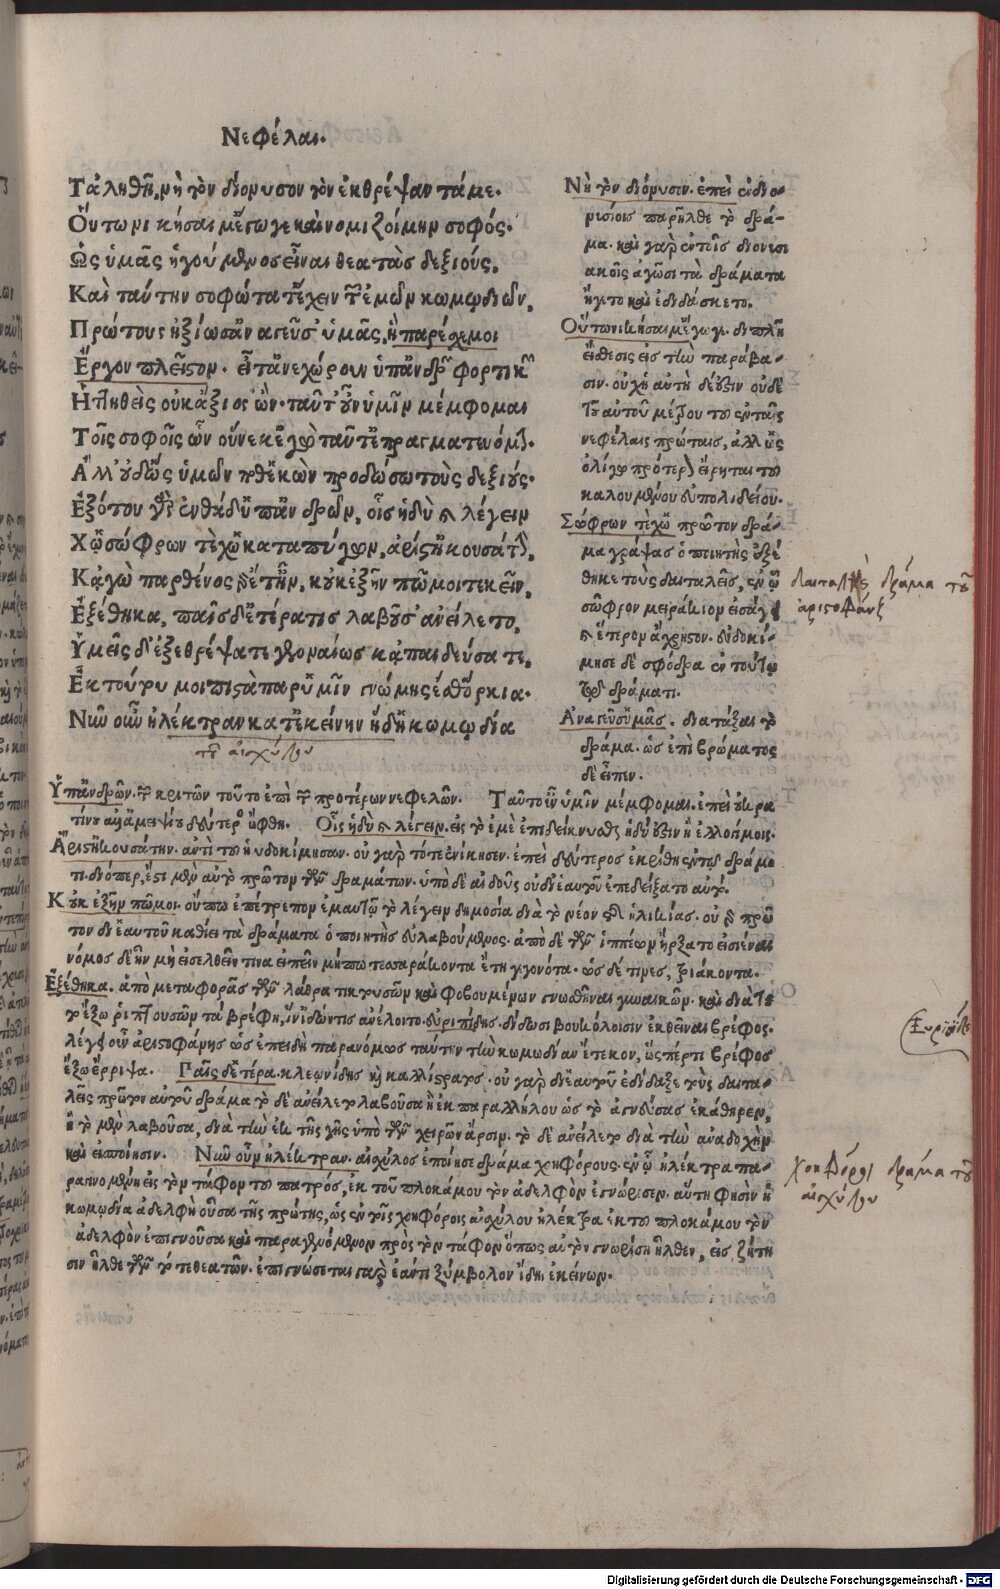 Νεφέλαι.
Τἀληθῆ, μὴ τὸν διόνυσον τὸν ἐκθρέψαντά με.
Οὕτω νικήσαιμ' ἔγωγε καὶ νομιζοίμην σοφός.
Ὡς ὑμᾶς ἡγούμενος εἶναι θεατὰς δεξιούς,
Καὶ ταύτην σοφώτατ' ἔχειν τῶν ἐμῶν κωμῳδιῶν,
Πρώτους ἠξίωσ' ἀναγεῦσ' ὑμᾶς, ἣ παρέσχε μοι
Ἔργον πλεῖστον. εἶτ' ἀνεχώρουν ὑπ' ἀνδρῶν φορτικῶν
Ἡττηθεὶς οὐκ ἄξιος ὤν. ταῦτ' οὖν ὑμῖν μέμφομαι
Τοῖς σοφοῖς ὧν οὕνεκ' ἐγὼ ταῦτ' ἐπραγματευόμην.
Ἀλλ' οὐδ' ὣς ὑμῶν ποθ' ἑκὼν προδώσω τοὺς δεξιούς.
Ἐξ ὅτου γὰρ ἐνθάδ' ὑπ' ἀνδρῶν, οἷς ἡδὺ καὶ λέγειν
Χὠ σώφρων τε χὠ καταπύγων, ἄριστ' ἠκουσάτην,
Κἀγὼ παρθένος γὰρ ἔτ' ἦν, κοὐκ ἐξῆν πώ μοι τεκεῖν,
Ἐξέθηκα, παῖς δ' ἑτέρα τις λαβοῦσ' ἀνείλετο,
Ὑμεῖς δ' ἐξεθρέψατε γενναίως κἀπαιδεύσατε,
Ἐκ τούτου μοι πιστὰ παρ' ὑμῖν γνώμης ἔσθ' ὅρκια.
Νῦν οὖν ἠλέκτραν κατ' ἐκείνην ἥδ' ἡ κωμῳδία
τοῦ αἰσχύλου
Νὴ τὸν διόνυσιν. ἐπεὶ ἐν διο-
νισίοις παρῆλθε τὸ δρά-
μα. καὶ γὰρ ἐν τοῖς διονισι
ακοῖς ἀγῶσι τὰ δράματα
ἤγετο καὶ ἐδιδάσκετο.
Οὕτω νικήσαιμ' ἔγωγε. διπλῆ
εἴσθεσις εἰς τὴν παράβα-
σιν. οὐχ ἡ αὐτὴ δέ ἐστιν οὐδὲ
τοῦ αὐτοῦ μέτρου τοῦ ἐν ταῖς
νεφέλαις πρώταις, ἀλλ' ὡς
ὀλίγῳ πρότερον εἴρηται τοῦ
καλουμένου εὐπολιδείου.
Σώφρων τε χὠ πρῶτον δρά-
μα γράψας ὁ ποιητὴς ἐξέ
θηκε τοὺς δαιταλεῖς, ἐν ᾧ
σῶφρον μειράκιον εἰσάγει
καὶ ἕτερον ἄχρηστον. εὐδοκί-
μησε δὲ σφόδρα ἐν τούτῳ
τῷ δράματι.
Ἀναγεῦσ' ὑμᾶς. διατάξαι τὸ
δρᾶμα. ὡς ἐπὶ βρώματος
δὲ εἶπεν.
δαιταλεῖς δρᾶμα τοῦ
ἀριστοφάνους
Ὑπ' ἀνδρῶν. τῶν κριτῶν τοῦτο ἐπὶ τῶν προτέρων νεφελῶν. Ταῦτ' οὖν ὑμῖν μέμφομαι. ἐπεὶ οὐ κρα
τίνου ἀμειψίου δεύτερος ὤφθη. Οἷς ἡδὺ καὶ λέγειν. εἰς τὸ ἐμὲ ἐπιδείκνυσθαι ἡδύ ἐστιν ἢ ἐλλογίμοις.
Ἄριστ' ἠκουσάτην. ἀντὶ τοῦ ηὐδοκίμησαν. οὐ γὰρ τότε ἐνίκησεν. ἐπεὶ δεύτερος ἐκρίθη ἐν τῷ δράμα
τι. διόπερ, ἔστι μὲν αὐτὸ πρῶτον τῶν δραμάτων. ὑπὸ δὲ αἰδοῦς οὐ δι' ἑαυτοῦ ἐπεδείξατο αὐτό.
Κοὐκ ἐξῆν πώ μοι. οὔπω ἐπέτρεπον ἐμαυτῷ τὸ λέγειν δημοσίᾳ διὰ τὸ νέον τῆς ἡλικίας. οὐ γὰρ πρῶ
τον δι' ἑαυτοῦ καθίει τὰ δράματα ὁ ποιητὴς εὐλαβούμενος. ἀπὸ δὲ τῶν ἱππέων ἤρξατο εἰσιέναι
νόμος δὲ ἦν μὴ εἰσελθεῖν τινα εἰπεῖν μήπω τεσσαράκοντα ἔτη γεγονότα. ὡς δέ τινες, τριάκοντα.
Ἐξέθηκα. ἀπὸ μεταφορᾶς τῶν λάθρα τικτουσῶν καὶ φοβουμένων γνωσθῆναι γυναικῶν. καὶ διὰ τοῦ
το ἔξω ῥιπτουσῶν τὰ βρέφη, ἵν' ἰδόντες ἀνέλοιντο. εὐριπίδης. δίδωσι βουκόλοισιν ἐκθεῖναι βρέφος.
λέγει οὖν ἀριστοφάνης ὡς ἐπειδὴ παρανόμως ταύτην τὴν κωμῳδίαν ἔτεκον, ὥσπερ τι βρέφος
ἔξω ἔρριψα. Παῖς δ' ἑτέρα. κλεωνίδης καὶ καλλίστρατος. οὐ γὰρ δι' ἑαυτοῦ ἐδίδαξε τοὺς δαιτα-
λεῖς πρῶτον αὐτοῦ δρᾶμα τὸ δὲ ἀνείλετο λαβοῦσα ἢ ἐκ παραλλήλου ὡς τὸ ἁγνεύσας ἐκάθηρεν,
ἢ τὸ μὲν λαβοῦσα, διὰ τὴν ἐκ τῆς γῆς ὑπὸ τῶν χειρῶν ἄρσιν. τὸ δὲ ἀνείλετο διὰ τὴν ἀναδοχὴν
καὶ εἰσποίησιν. Νῦν οὖν ἠλέκτραν. αἰσχύλος ἐποίησε δρᾶμα χοηφόρους. ἐν ᾧ ἠλέκτρα πα-
ραγινομένη εἰς τὸν τάφον τοῦ πατρός, ἐκ τοῦ πλοκάμου τὸν ἀδελφὸν ἐγνώρισεν. αὕτη φησὶν ἡ
κωμῳδία ἀδελφὴ οὖσα τῆς πρώτης, ὡς ἐν τοῖς χοηφόροις αἰσχύλου ἠλέκτρα ἐκ τοῦ πλοκάμου τὸν
ἀδελφὸν ἐπιγνοῦσα καὶ παραγενόμενον πρὸς τὸν τάφον ὅπως αὐτὸν γνωρίσῃ ἦλθεν, εἰς ζήτη
σιν ἦλθε τῶν τότε θεατῶν. ἐπιγνώσεται γὰρ ἐάν τι ξύμβολον ἴδῃ ἐκείνων.
Εὐριπίδης
χοηφόροι δρᾶμα τοῦ
αἰσχύλου
Digitalisierung gefördert durch die Deutsche Forschungsgemeinschaft - DFG